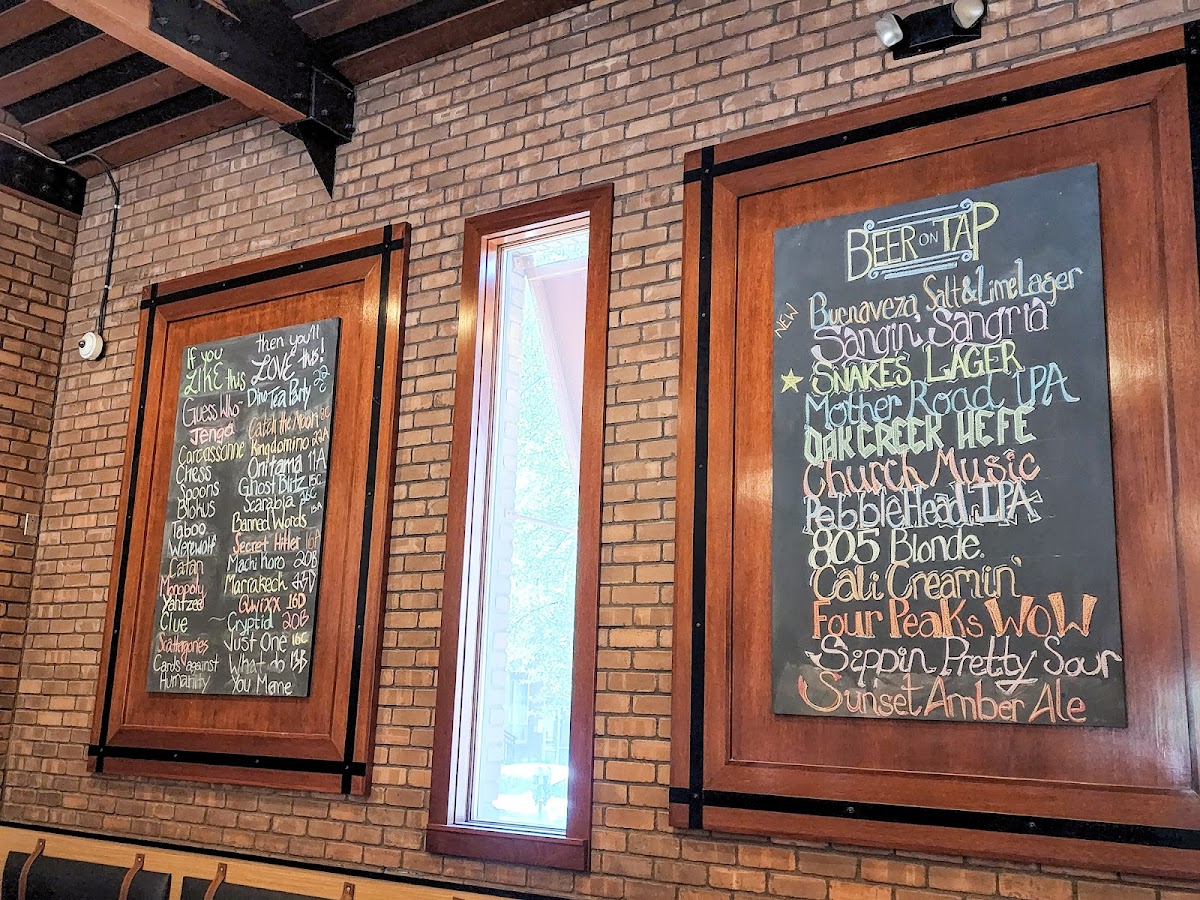 If you then you'll
LIKE this LOVE this!
Guess Who - Dino Tea Party 2C
Jenga Catch the Moon
Carcassonne Kingdomino 22A
Chess Onitama 11A
Spoons Ghost Blitz 15C
Blokus Scarabya
Taboo Banned Words 15A
Werewolf Secret Hitler
Catan Machi Koro 20B
Monopoly Marrakech
Yahtzee Qwixx 16D
Clue ~ Cryptid 20B
Scattergories Just One 16C
Cards against What do 13B
Humanity You Meme
BEER ON TAP
NEW Buenaveza Salt & Lime Lager
Sangin' Sangria
SNAKES LAGER
Mother Road IPA
OAK CREEK HEFE
Church Music
Pebble Head IPA
805 Blonde.
Cali Creamin'
FOUR PEAKS WOW
Sippin Pretty Sour
Sunset Amber Ale